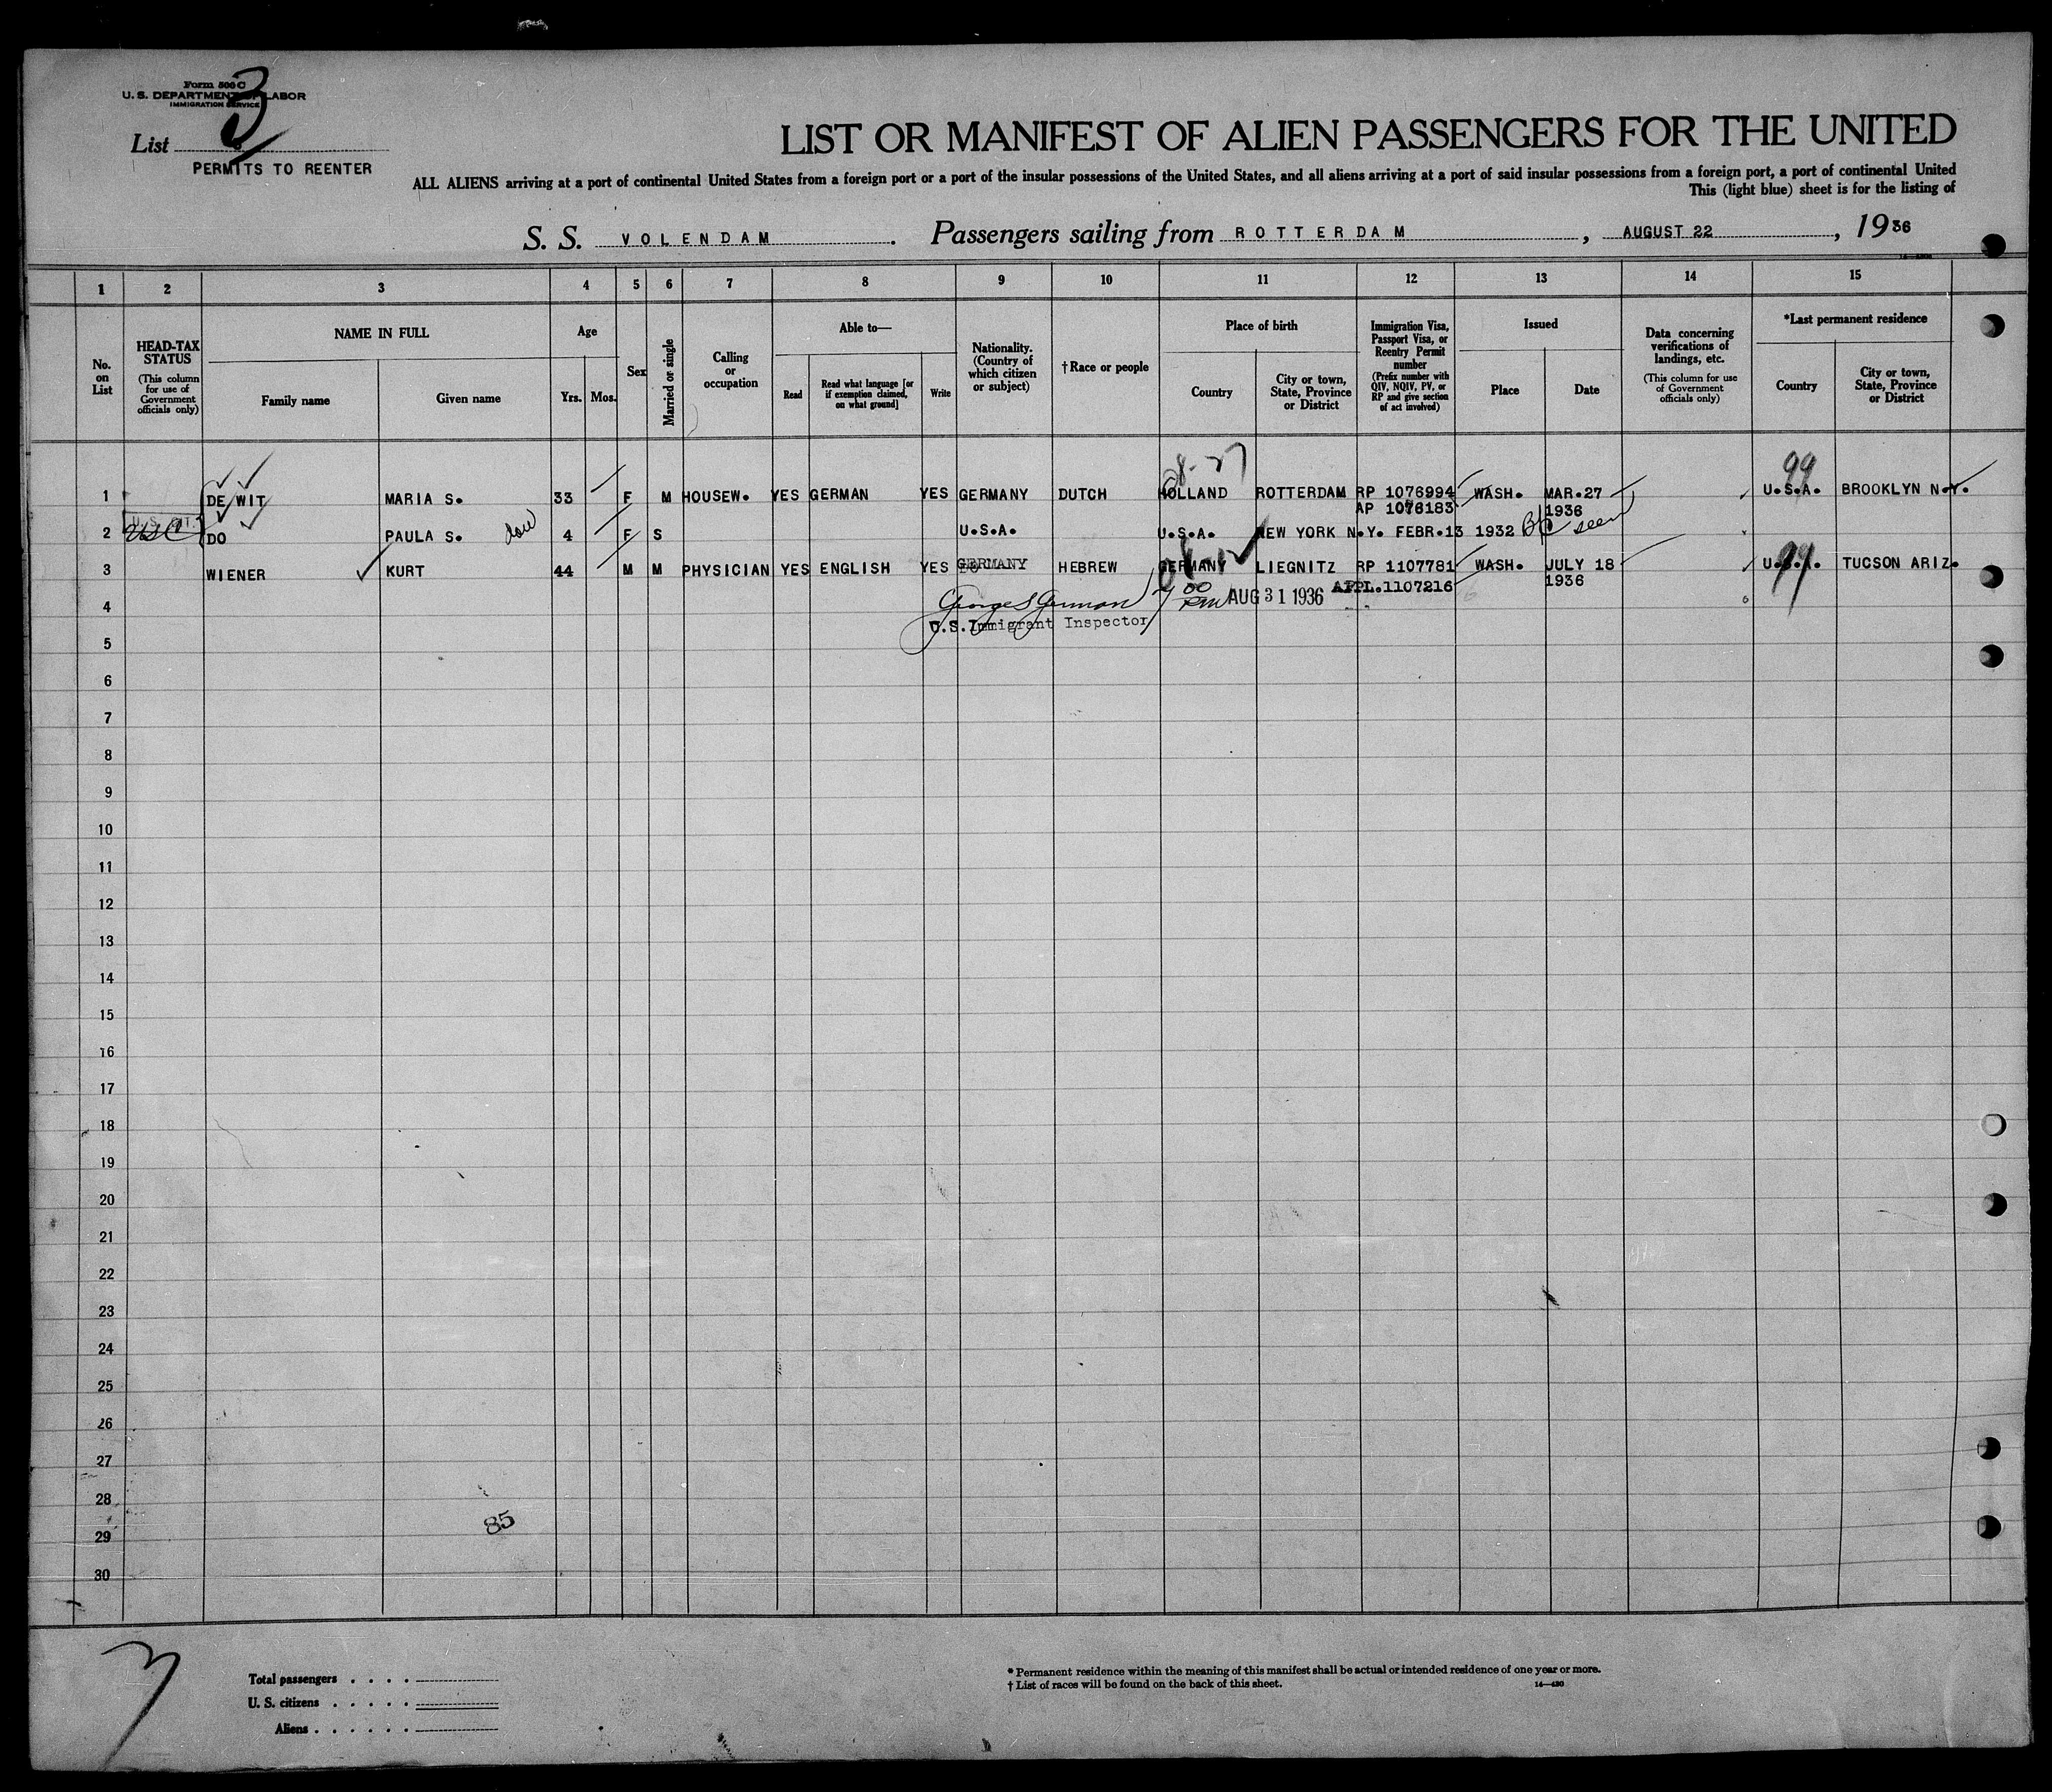 Form 500 C
U. S. DEPARTMENT OF LABOR
IMMIGRATION SERVICE
3
List
PERMITS TO REENTER
LIST OR MANIFEST OF ALIEN PASSENGERS FOR THE UNITED
ALL ALIENS arriving at a port of continental United States from a foreign port or a port of the insular possessions of the United States, and all aliens arriving at a port of said insular possessions from a foreign port, a port of continental United
This (light blue) sheet is for the listing of
S. S. VOLENDAM. Passengers sailing from ROTTERDAM, AUGUST 22, 1936
1 2 3 4 5 6 7 8 9 10 11 12 13 14 15
No. on List
HEAD-TAX STATUS
(This column for use of Government officials only)
NAME IN FULL
Family name Given name
Age
Yrs. Mos.
Sex
Married or single
Calling or occupation
Able to—
Read Read what language [or if exemption claimed, on what ground] Write
Nationality. (Country of which citizen or subject)
† Race or people
Place of birth
Country City or town, State, Province or District
Immigration Visa, Passport Visa, or Reentry Permit number
(Prefix number with QIV, NQIV, PV, or RP and give section of act involved)
Issued
Place Date
Data concerning verifications of landings, etc.
(This column for use of Government officials only)
*Last permanent residence
Country City or town, State, Province or District
99
1 DE WIT MARIA S. 33 F M HOUSEW. YES GERMAN YES GERMANY DUTCH HOLLAND ROTTERDAM RP 1076994 WASH. MAR.27 U.S.A. BROOKLYN N.Y.
AP 1076183 1936
U.S. CIT.
2 USC DO PAULA S. 4 F S U.S.A. U.S.A. NEW YORK N.Y. FEBR.13 1932 B/C seen
3 WIENER KURT 44 M M PHYSICIAN YES ENGLISH YES GERMANY HEBREW GERMANY LIEGNITZ RP 1107781 WASH. JULY 18 U.S.A. TUCSON ARIZ.
99
APPL.1107216 1936
4 George S German AUG 31 1936
U.S. Immigrant Inspector
5
6
7
8
9
10
11
12
13
14
15
16
17
18
19
20
21
22
23
24
25
26
27
28
85
29
30
3
Total passengers . . . .
U. S. citizens . . . . .
Aliens . . . . . .
* Permanent residence within the meaning of this manifest shall be actual or intended residence of one year or more.
† List of races will be found on the back of this sheet.
14—430